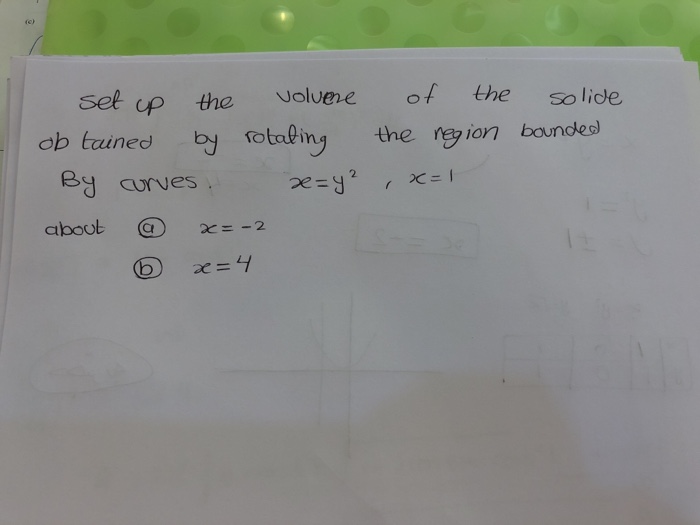 set up the volume of the solide
obtained by rotating the region bounded
By curves. x=y² , x=1
about ⓐ x=-2
ⓑ x=4